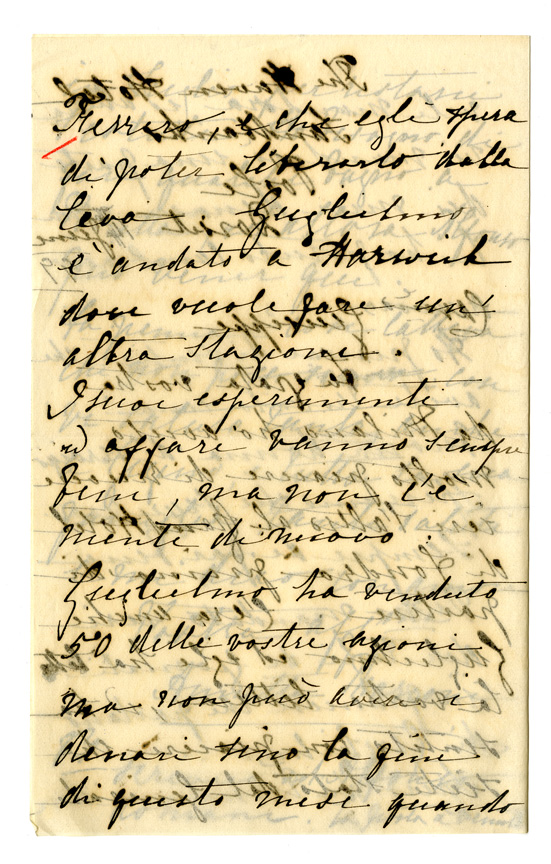 Ferrero, e che egli spera
di poter liberarlo dalla
leva. Guglielmo
è andato a Harwich
dove vuole fare un'
altra stazione.
I suoi esperimenti
ed affari vanno sempre
bene, ma non c'è
niente di nuovo.
Guglielmo ha venduto
50 delle vostre azioni
ma non può avere i
denari sino la fine
di questo mese quando